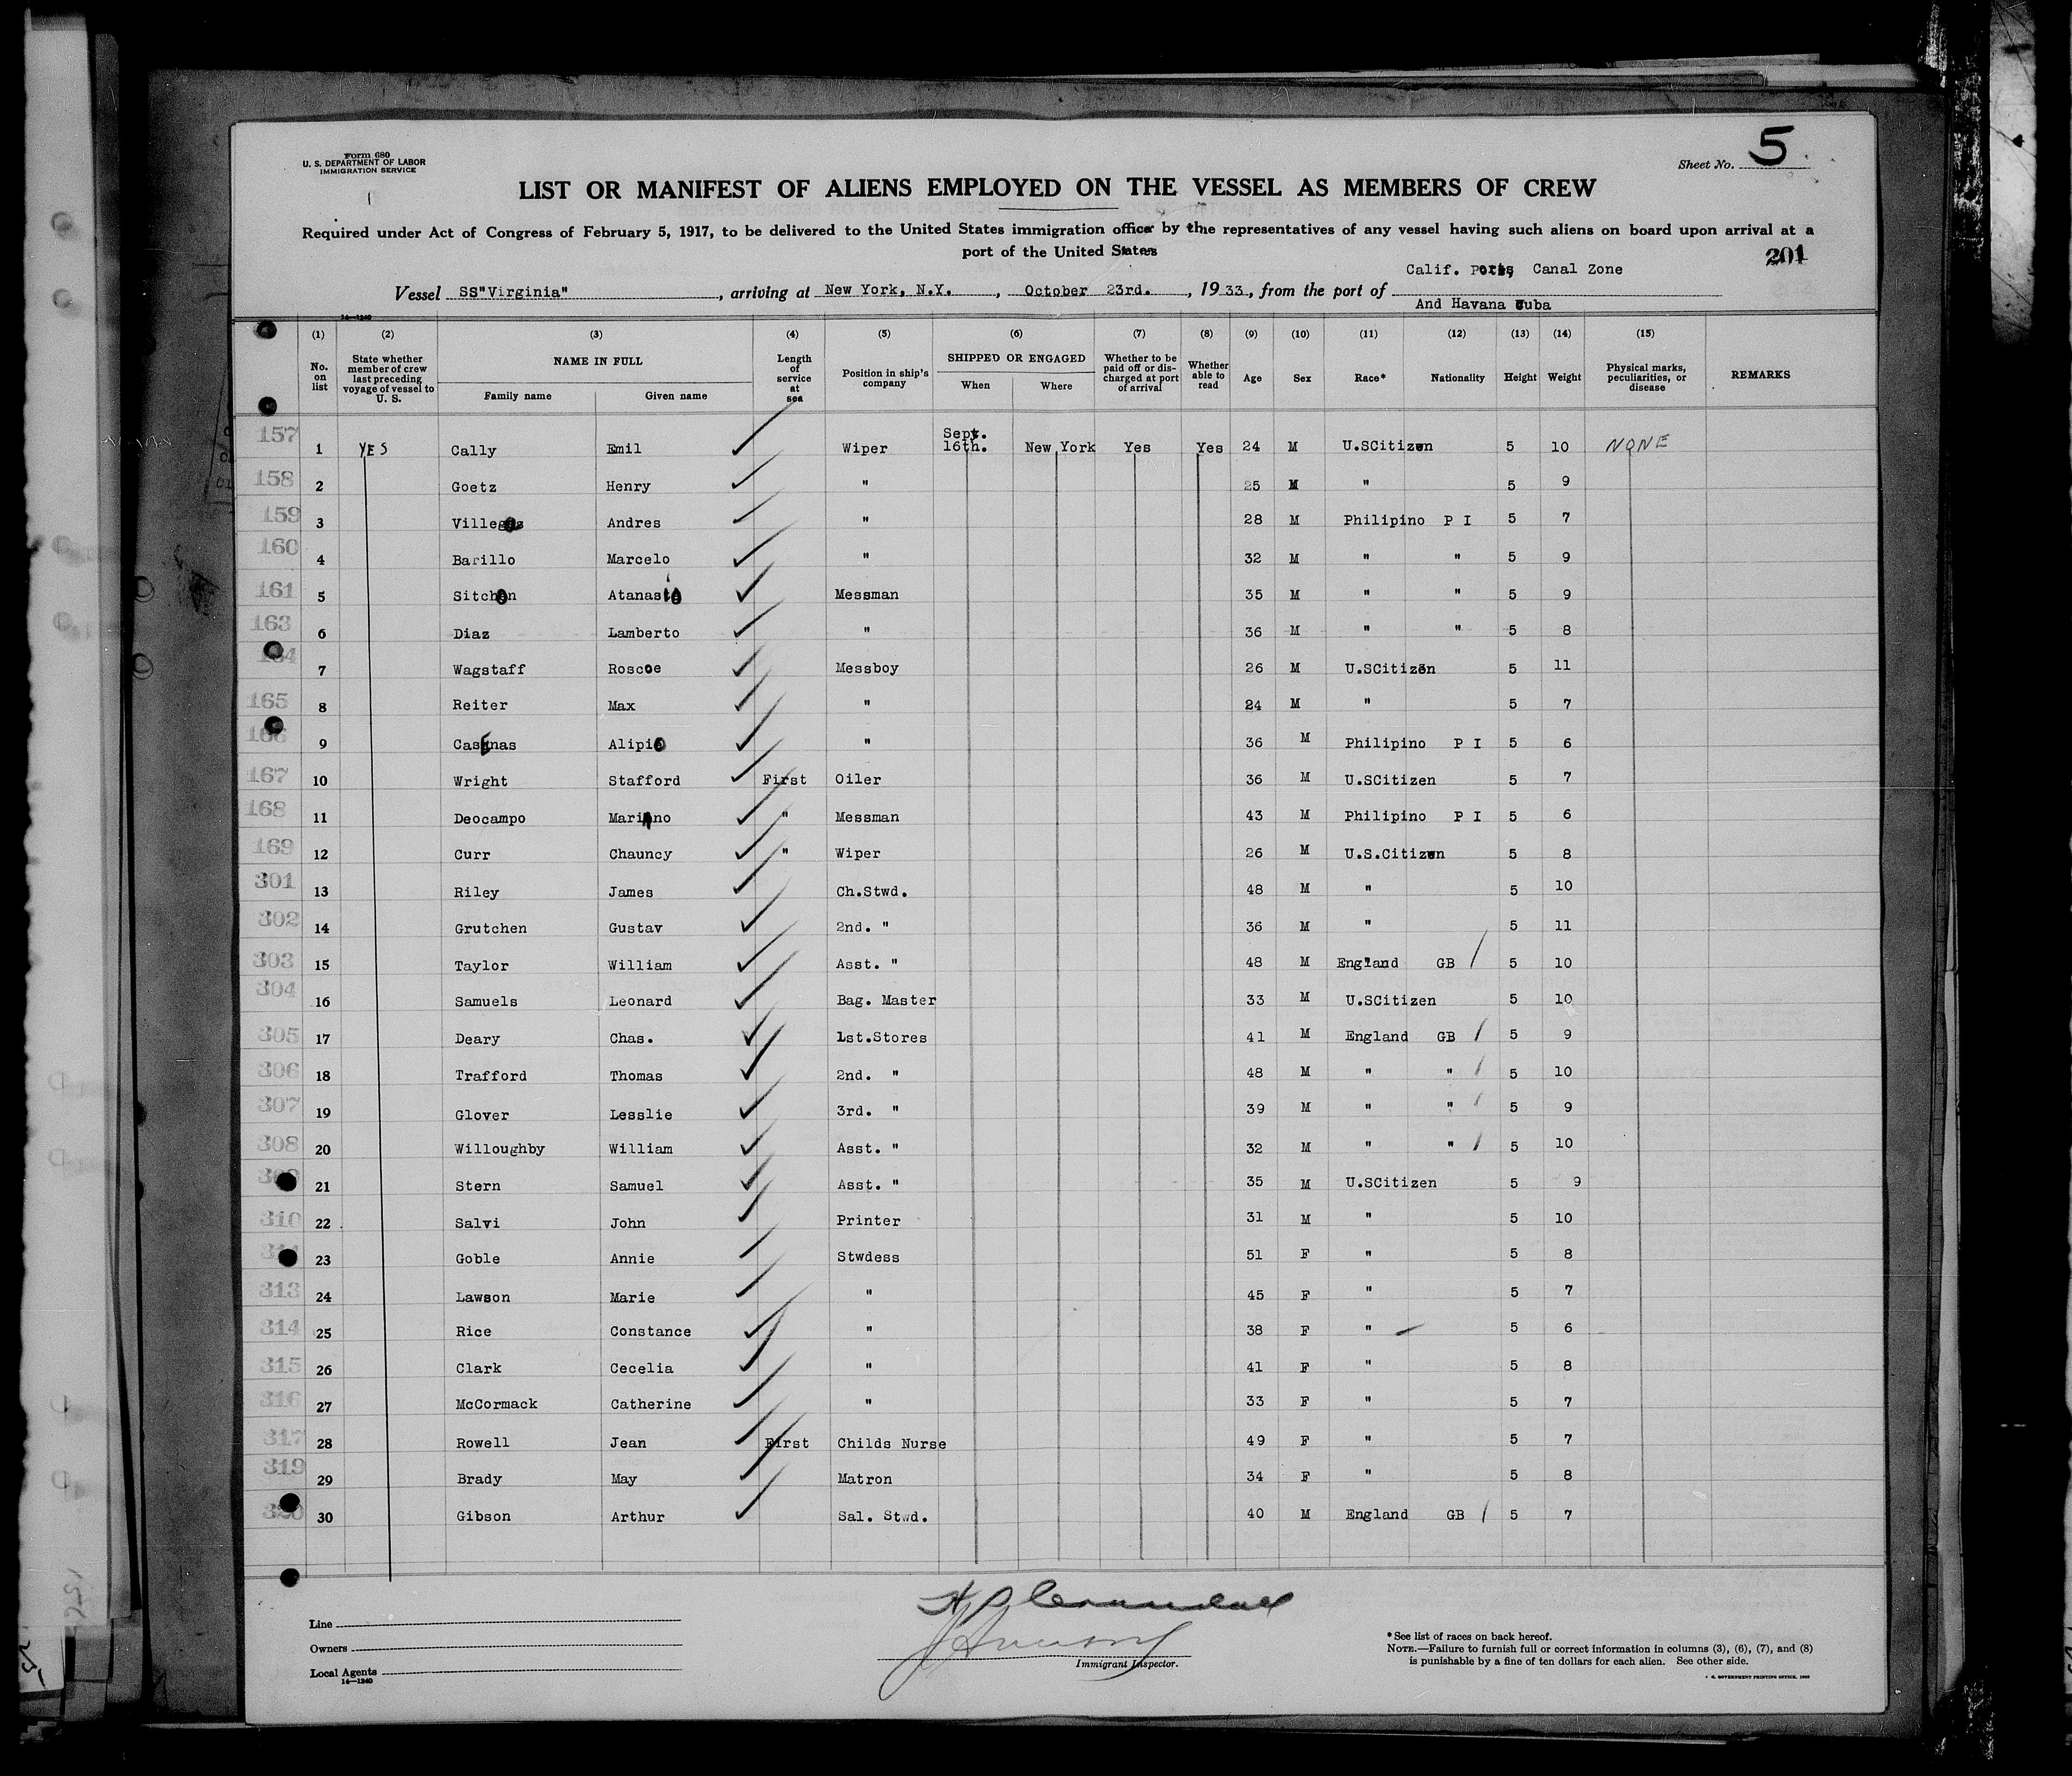 Form 680
U. S. DEPARTMENT OF LABOR
IMMIGRATION SERVICE
Sheet No. 5
LIST OR MANIFEST OF ALIENS EMPLOYED ON THE VESSEL AS MEMBERS OF CREW
Required under Act of Congress of February 5, 1917, to be delivered to the United States immigration officer by the representatives of any vessel having such aliens on board upon arrival at a
port of the United States
201
Calif. Ports, Canal Zone
Vessel SS"Virginia", arriving at New York, N.Y., October 23rd., 1933, from the port of
And Havana Cuba
14—1240
(1) (2) (3) (4) (5) (6) (7) (8) (9) (10) (11) (12) (13) (14) (15)
No. on list State whether member of crew last preceding voyage of vessel to U. S. NAME IN FULL Family name Given name Length of service at sea Position in ship's company SHIPPED OR ENGAGED When Where Whether to be paid off or discharged at port of arrival Whether able to read Age Sex Race* Nationality Height Weight Physical marks, peculiarities, or disease REMARKS
157 1 YES Cally Emil Wiper Sept. 16th. New York Yes Yes 24 M U.SCitizen 5 10 NONE
158 2 Goetz Henry " 25 M " 5 9
159 3 Villegas Andres " 28 M Philipino P I 5 7
160 4 Barillo Marcelo " 32 M " " 5 9
161 5 Sitchon Atanasio Messman 35 M " " 5 9
163 6 Diaz Lamberto " 36 M " " 5 8
164 7 Wagstaff Roscoe Messboy 26 M U.SCitizen 5 11
165 8 Reiter Max " 24 M " 5 7
166 9 Casenas Alipio " 36 M Philipino P I 5 6
167 10 Wright Stafford First Oiler 36 M U.SCitizen 5 7
168 11 Deocampo Mariano " Messman 43 M Philipino P I 5 6
169 12 Curr Chauncy " Wiper 26 M U.S.Citizen 5 8
301 13 Riley James Ch.Stwd. 48 M " 5 10
302 14 Grutchen Gustav 2nd. " 36 M " 5 11
303 15 Taylor William Asst. " 48 M England GB 5 10
304 16 Samuels Leonard Bag. Master 33 M U.SCitizen 5 10
305 17 Deary Chas. 1st.Stores 41 M England GB 5 9
306 18 Trafford Thomas 2nd. " 48 M " " 5 10
307 19 Glover Lesslie 3rd. " 39 M " " 5 9
308 20 Willoughby William Asst. " 32 M " " 5 10
309 21 Stern Samuel Asst. " 35 M U.SCitizen 5 9
310 22 Salvi John Printer 31 M " 5 10
23 Goble Annie Stwdess 51 F " 5 8
313 24 Lawson Marie " 45 F " 5 7
314 25 Rice Constance " 38 F " 5 6
315 26 Clark Cecelia " 41 F " 5 8
316 27 McCormack Catherine " 33 F " 5 7
317 28 Rowell Jean First Childs Nurse 49 F " 5 7
319 29 Brady May Matron 34 F " 5 8
320 30 Gibson Arthur Sal. Stwd. 40 M England GB 5 7
Line
Owners
Local Agents
14—1240
Immigrant Inspector.
*See list of races on back hereof.
NOTE.—Failure to furnish full or correct information in columns (3), (6), (7), and (8)
is punishable by a fine of ten dollars for each alien. See other side.